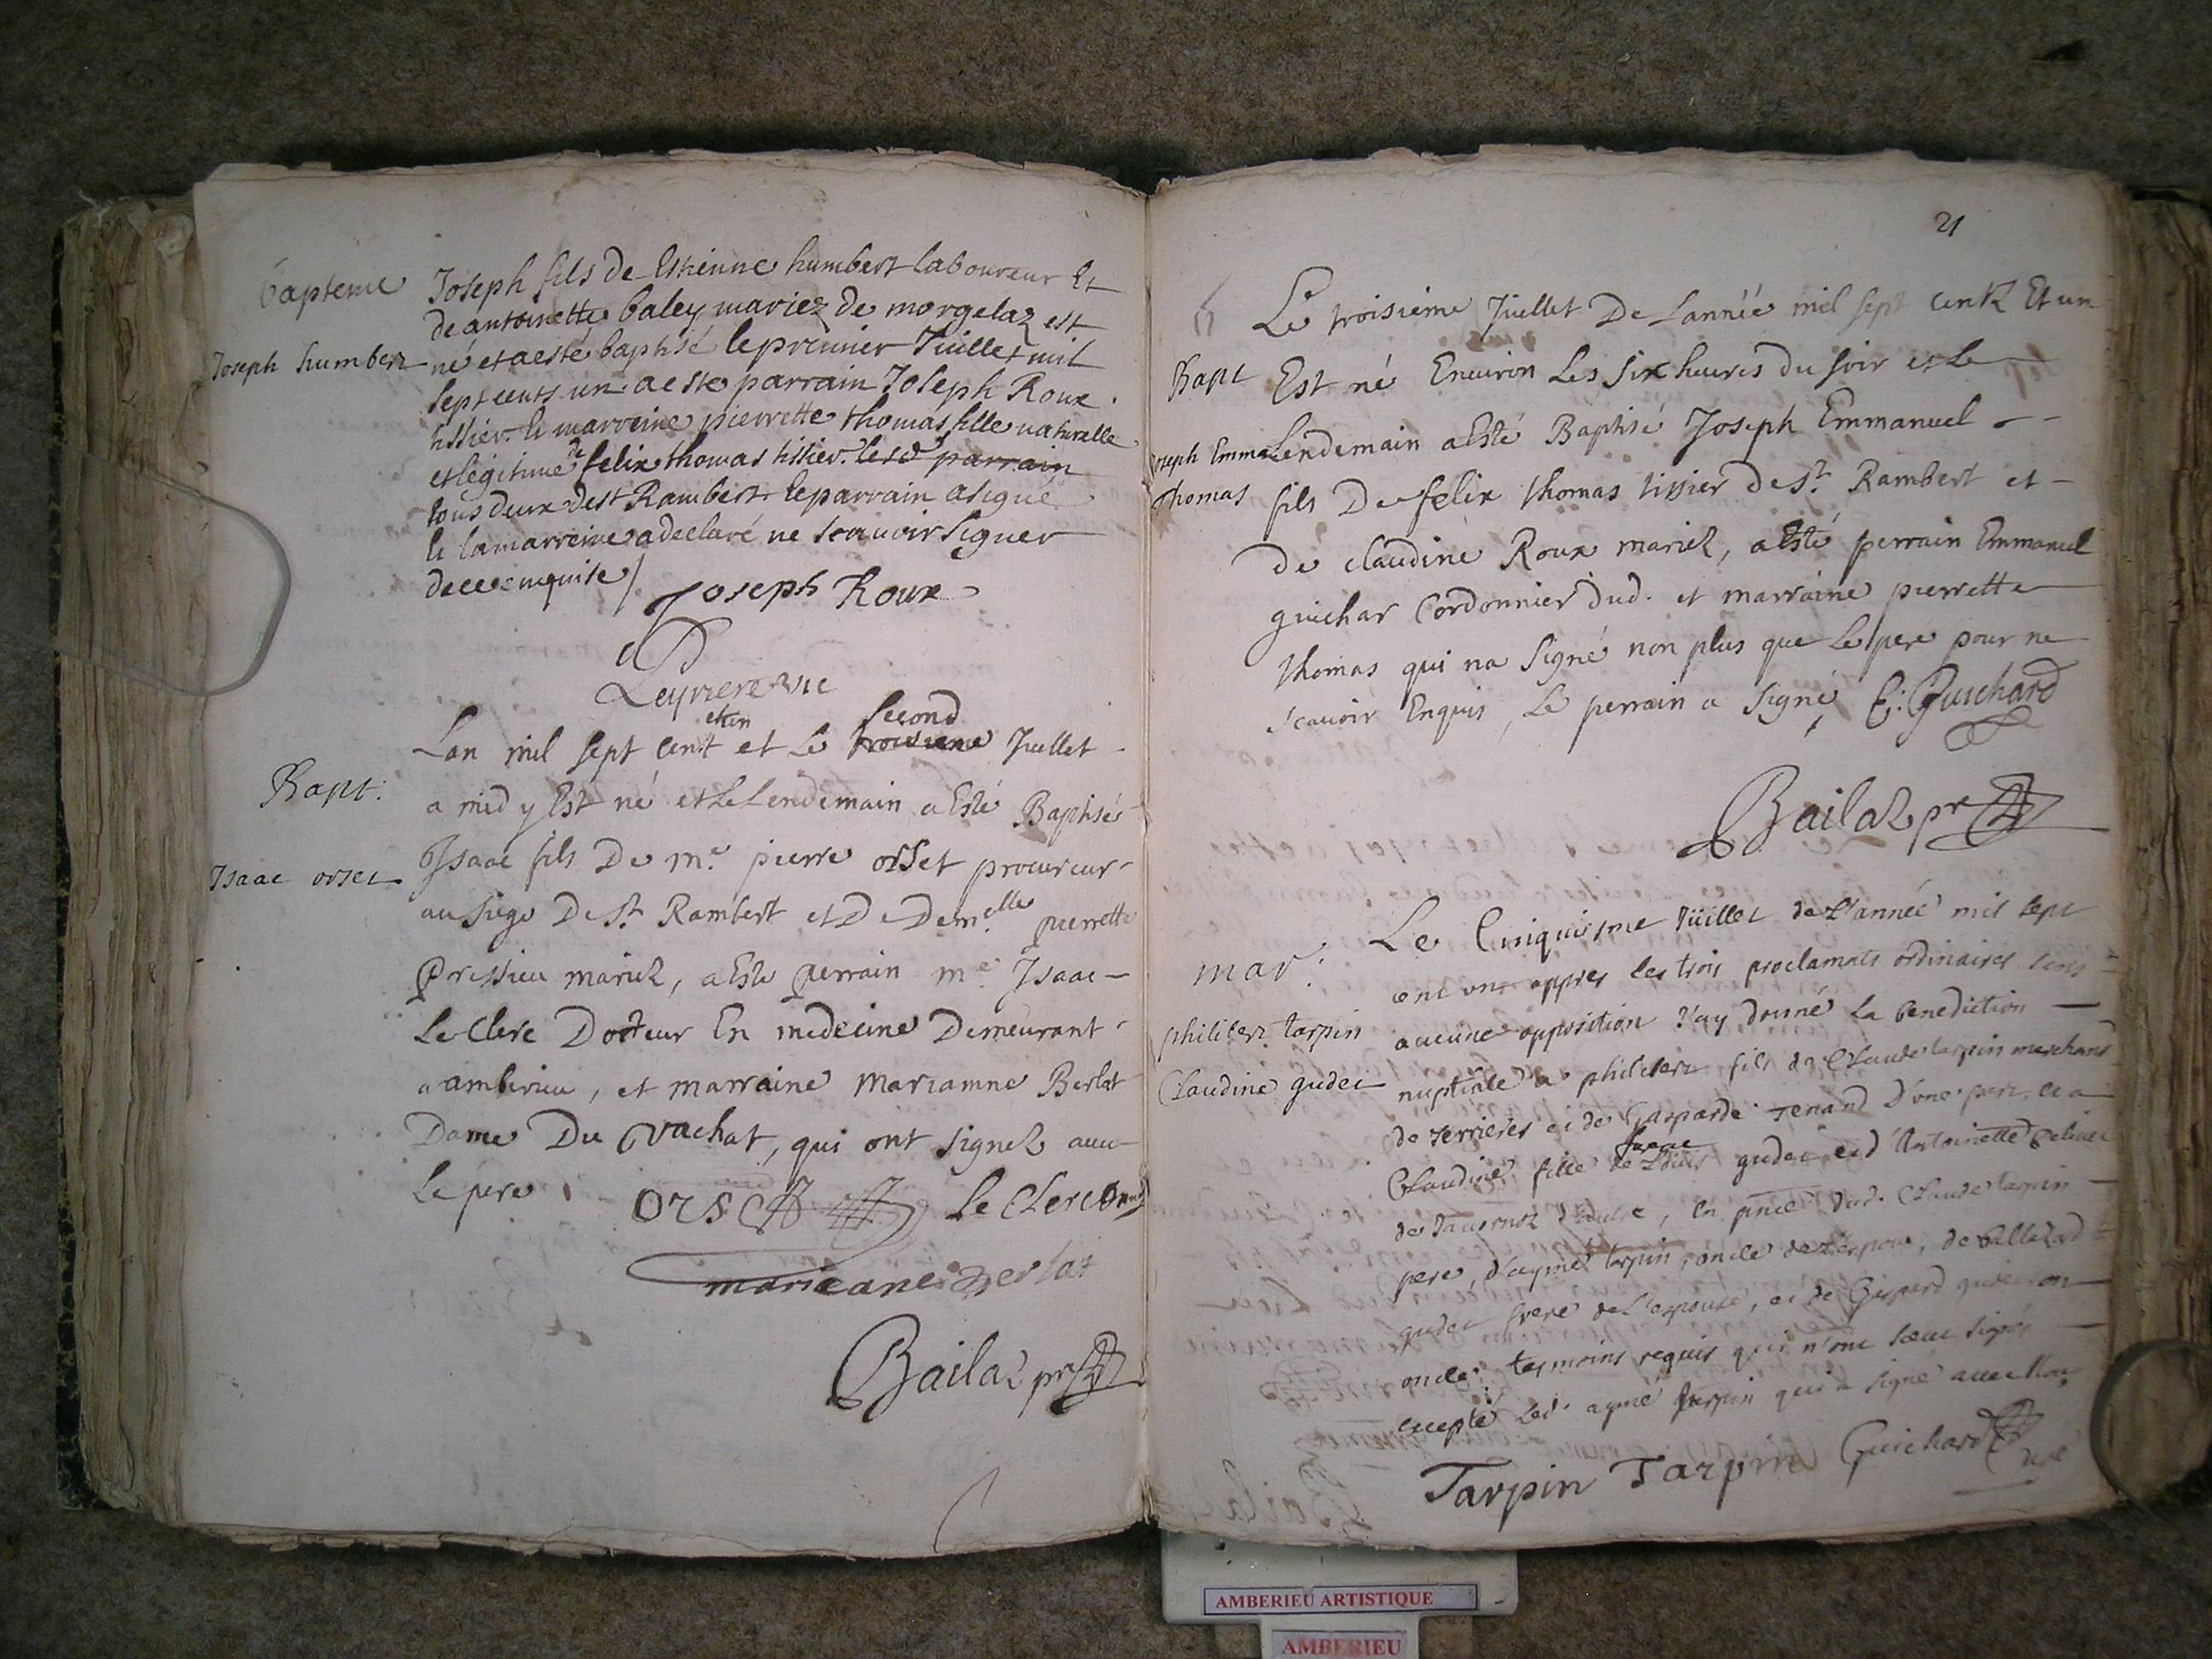 bapteme
Joseph humbert
Joseph fils de Estienne humbert laboureur Et
de antoinette baley mariez de morgelaz est
né et a esté baptisé le premier Juillet mil
sept cents un a este parrain Joseph Roux
tissier & marreine pierrette thomas fille naturelle
et légitime de felix thomas tissier. lesd parrain
tous deux de st Rambert le parrain a signé
& la marreine a declaré ne scavoir signer
de ce enquise
Joseph Roux
Leyriere vic
Bapt.
Isaac orset
Lan mil sept cent et un et le troisieme second Juillet
a midy Est né et le Lendemain a Esté Baptisés
Isaac fils De me. pierre orset procureur
au siege De St. Rambert et De Demelle pierrette
Pressieu mariez, a Este perrain me. Isaac
Le Clerc Docteur En medecine Demeurant
a amberieu, et marraine mariamne Berlat
Dame Du Vachat, qui ont signez avec
le pere
Orset Le Clerc
marieane Berlat
Bailaz pr
21
Bapt
Joseph Emma
Thomas
Le troisieme Juillet De Lannéé mil sept cents Et un
Est né Environ Les six heures du soir et Le
Lendemain a Esté Baptisé Joseph Emmanuel
fils De felix thomas tissier de St. Rambert et
De claudine Roux mariez, a Esté perrain Emmanuel
guichar Cordonnier dud. et marraine pierrette
thomas qui na signé non plus que Le pere pour ne
scavoir Enquis, Le perrain a signé, E. Guichard
Bailaz pr
mar.
philibert tarpin
Claudine gudet
Le Cinquisme Juillet de l'année mil sept
cent un appres les trois proclamats ordinaires sens
aucune opposition J'ay donné la benediction
nuptiale a philibert fils de Claude tarpin marchand
de serrieres et de Gasparde renand d'une part, et a
Claudine fille de Isaac gudet et d'Antoinette
de Javornoz d'autre, en pnce dud. Claude tarpin
pere, d'aymé tarpin, oncle de l'espoux, de
gudet frere de l'espouse, et de Gaspard gudet son
oncle tesmoins requis qui n'ont sceu signer
excepté led. aymé tarpin qui a signé avec nous
Tarpin Tarpin Guichard curé
AMBERIEU ARTISTIQUE
AMBERIEU